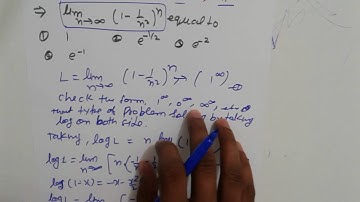 ⇒ lim n→∞ (1 - 1/n²)ⁿ equal to
① 1 ② e^-1/2 ③ e^-2
④ e^-1
L = lim n→∞ (1 - 1/n²)ⁿ → (1^∞) ①
Check the form. 1^∞, 0^∞, ∞^∞,
that type of Problem by taking
log on both side.
Taking, log L = n
log L = lim n→∞ [n
log(1-x) = -x - x²
log L = lim